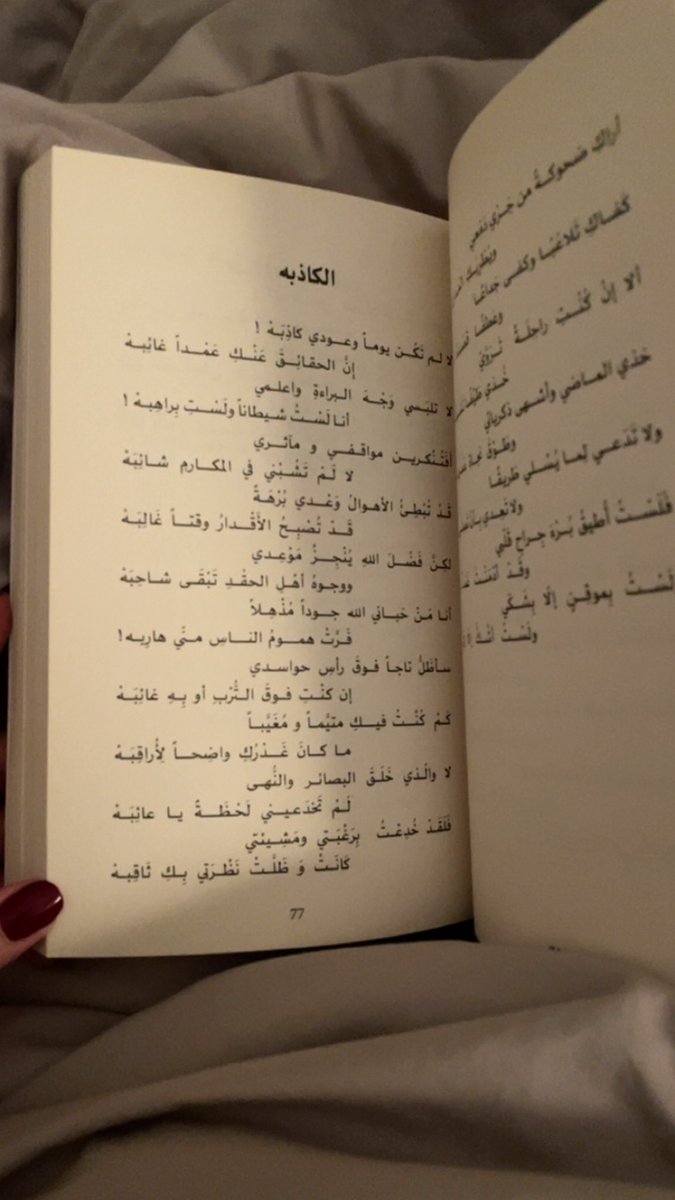 الكاذبه
لا لم تَكُـن يوماً وعـودي كاذِبَـهْ !
إنَّ الحقائِـقَ عَنْـكِ عَمْـداً غائِبَـهْ
لا تلبَسي وَجْـهَ الـبراءةِ واعلـمي
أنا لَسْتُ شيطاناً ولَسْتِ بِراهِبهْ !
أفَتُنْكِرين مواقفـي و مآثـري
لا لَمْ تَشُبْني في المكارمِ شائِبَهْ
قَدْ تُبْطِئُ الأهوالُ وَعْـدي بُرْهَةً
قَـدْ تُصْبِحُ الأقْـدارُ وقتـاً غالِبَـهْ
لكنَّ فَضْـلَ اللهِ يُنْجِـزُ مَوْعِدي
ووجوهُ أهْـلِ الحقْـدِ تَبْقَـى شاحِبَهْ
أنا مَـنْ حَباني الله جـوداً مُذْهِـلاً
فَـرَّتْ همـومُ الناسِ منّي هاربـه!
سـأظَلُّ تاجاً فـوقَ رأسِ حواسـدي
إن كنْتِ فـوقَ التُّرْبِ أو بِـهِ غائِبَـهْ
كَمْ كُنْتُ فيـكِ متيَّمـاً و مُغَيَّبـاً
ما كـانَ غَـدْرُكِ واضِحـاً لِأُراقِبَـهْ
لا والَّـذي خَلَـقَ البصائـر والنُّهـى
لَمْ تَخْدَعيـني لَحْظَـةً يـا عائِبَـهْ
فَلَقَـدْ خُدِعْـتُ بِرَغْبَتي ومَشِيئتي
كَانَتْ وَ ظَلَّـتْ نَظْـرَتي بِـكِ ثَاقِبـهْ
77
أراكِ ضحوكـةً من
كَفـاكِ تَلاعُبـاً وكفـى خِداعـاً
ألا إنْ كُنْـتِ راحِلَـةً
خـذي المـاضي وأشـهى ذكرياتي
ولا تَدَّعـي لِمـا يُسْـلي طَريقـاً
فَلَسْـتُ أُطيـقُ بُـرْءَ جِـراحِ قَلْبي
لَسْـتُ بِموقِـنٍ إلّا بِشَـكّي